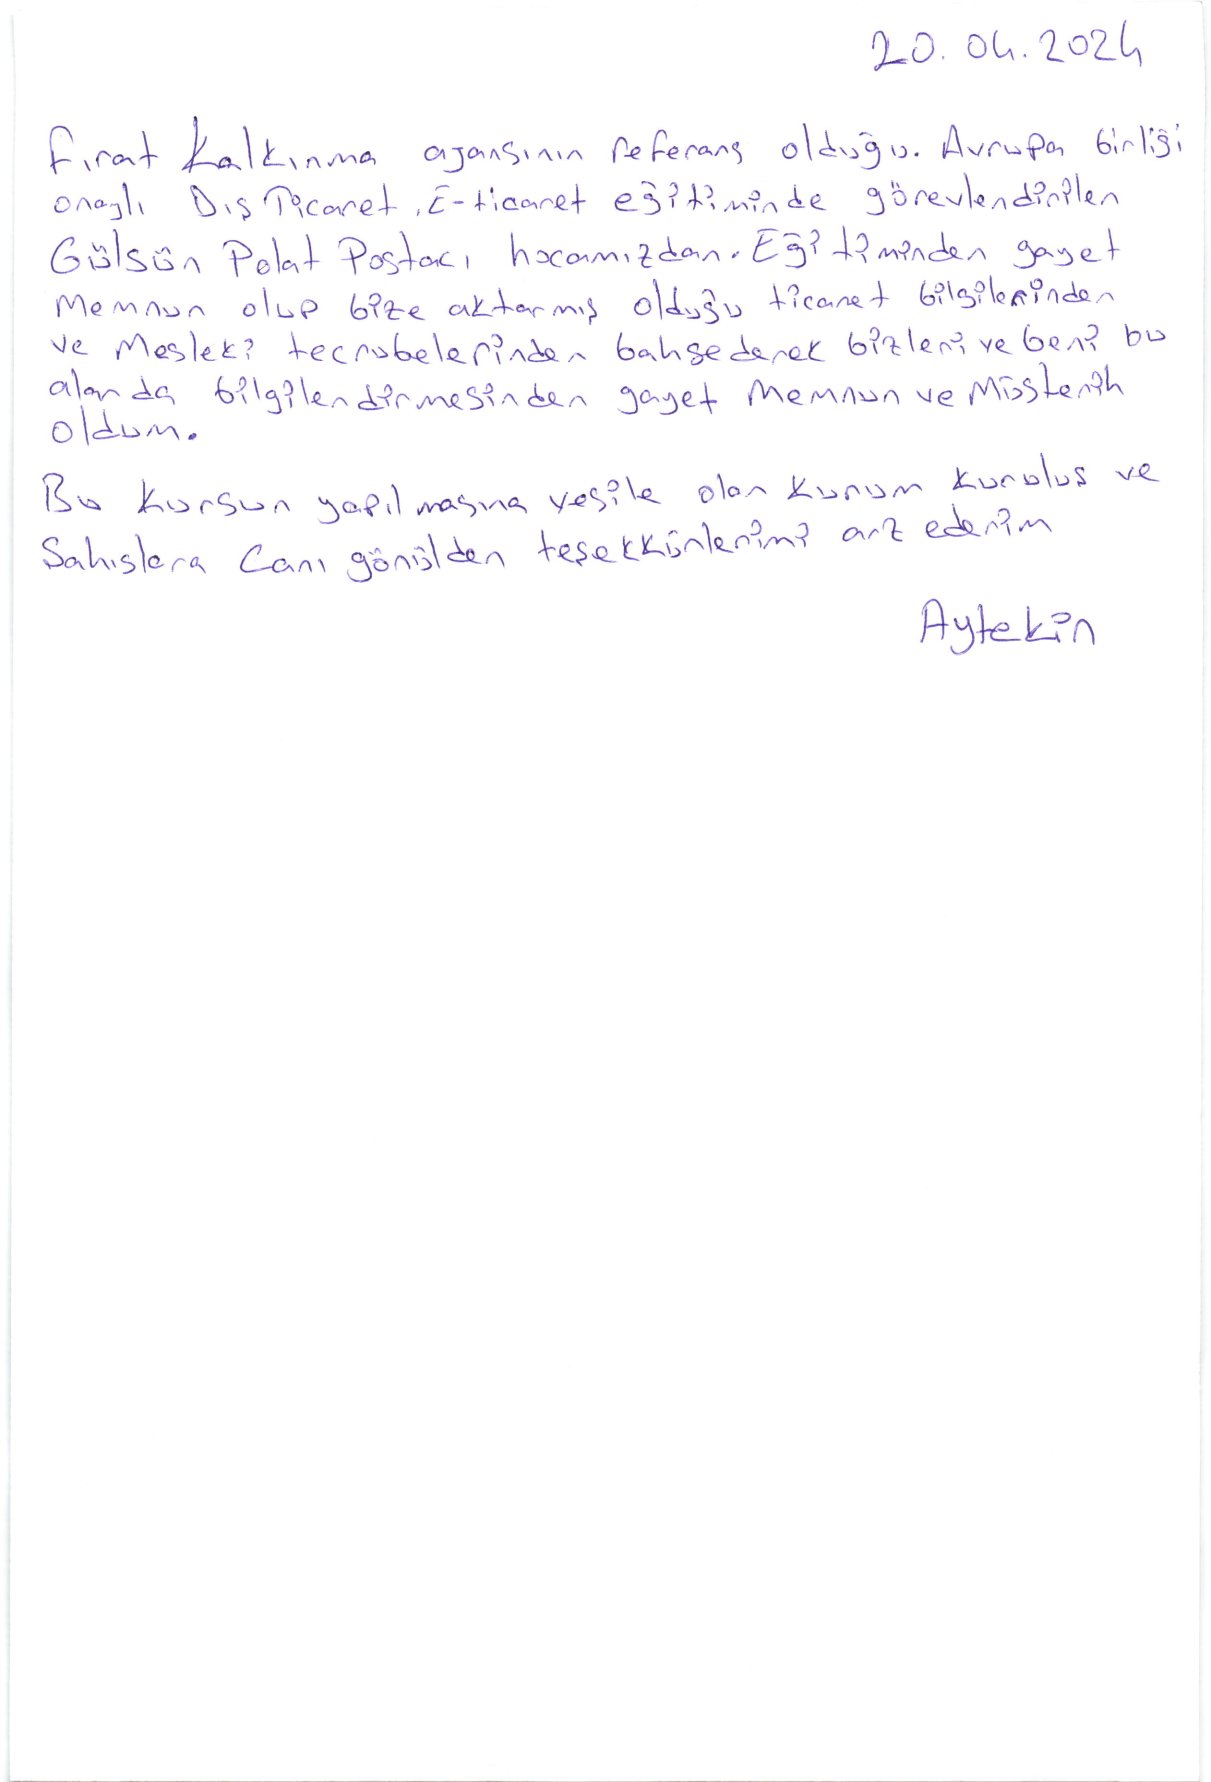 20.04.2024
Fırat Kalkınma ajansının referans olduğu. Avrupa birliği
onaylı Dış Ticaret, E-ticaret eğitiminde görevlendirilen
Gülsün Polat Postacı hocamızdan. Eğitiminden gayet
Memnun olup bize aktarmış olduğu ticaret bilgilerinden
ve Mesleki tecrubelerinden bahsederek bizleri ve beni bu
alanda bilgilendirmesinden gayet Memnun ve Müsterih
oldum.
Bu kursun yapılmasına vesile olan kurum kuruluş ve
Sahıslara Canı gönülden teşekkürlerimi arz ederim
Aytekin